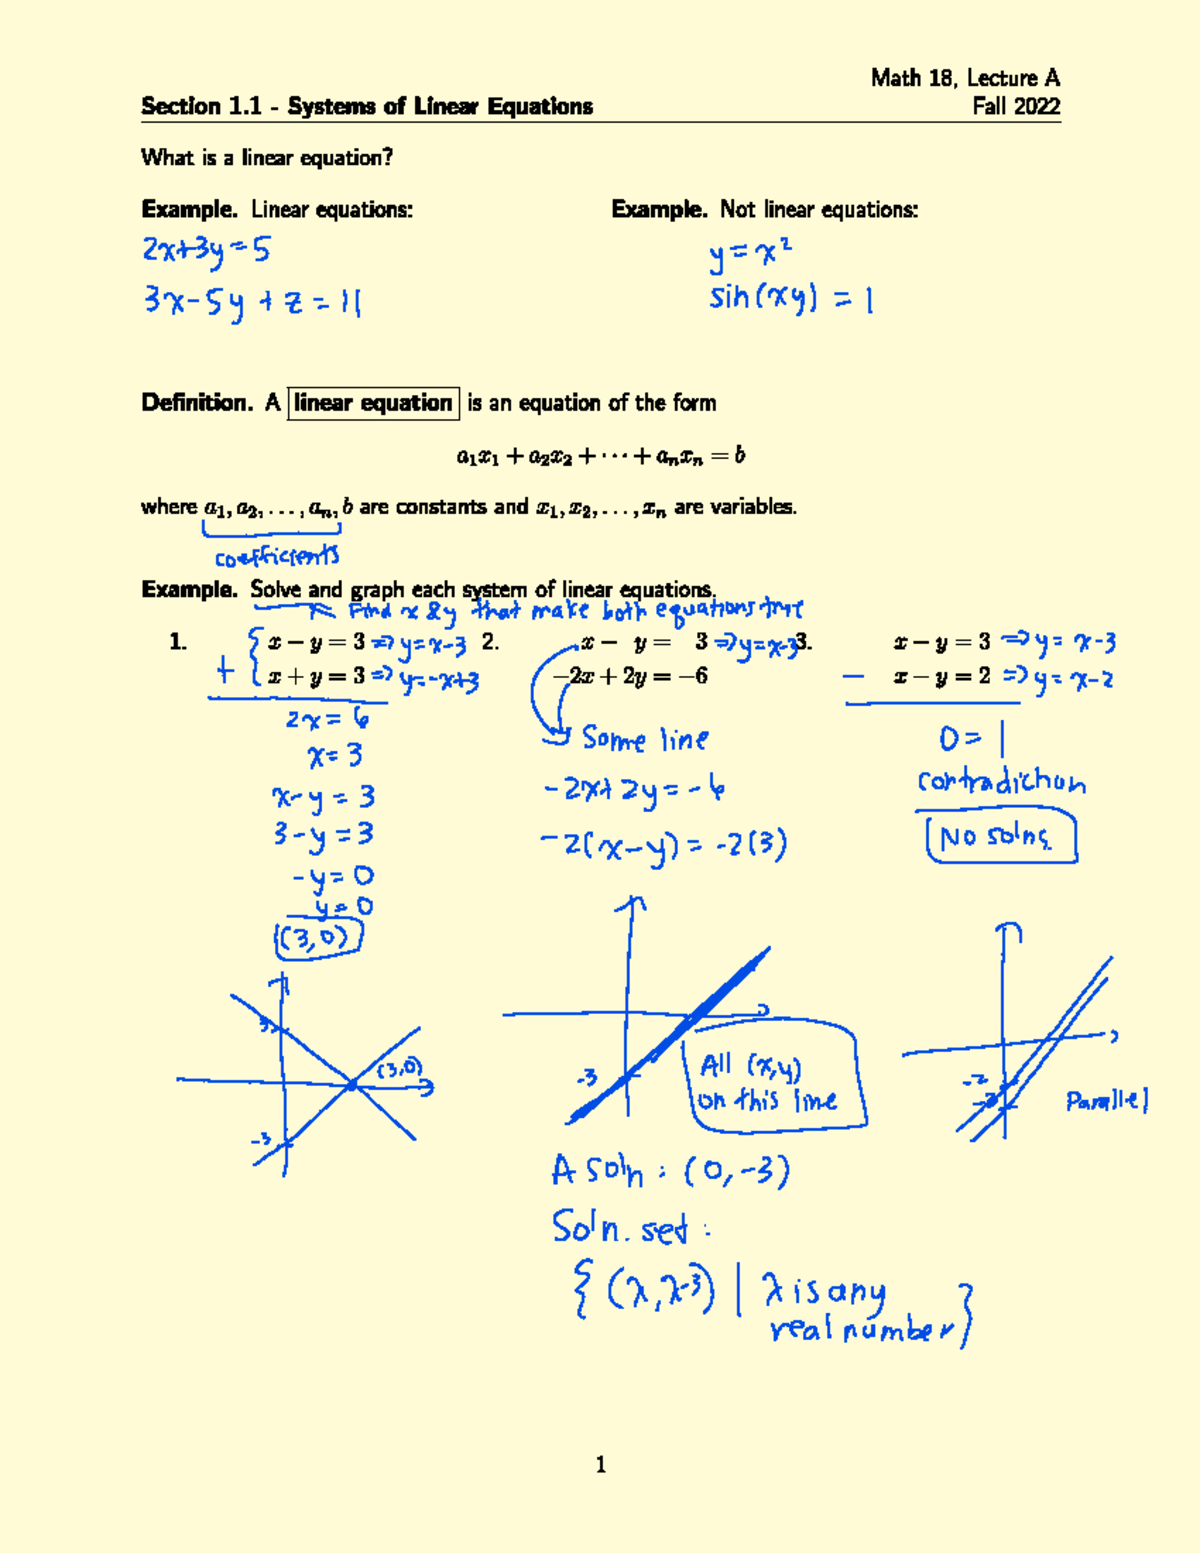 Math 18, Lecture A
Section 1.1 - Systems of Linear Equations Fall 2022
What is a linear equation?
Example. Linear equations: Example. Not linear equations:
2x+3y=5 y=x²
3x-5y+z=11 sin(xy)=1
Definition. A linear equation is an equation of the form
a₁x₁ + a₂x₂ + ··· + aₙxₙ = b
where a₁, a₂, . . . , aₙ, b are constants and x₁, x₂, . . . , xₙ are variables.
coefficients
Example. Solve and graph each system of linear equations.
Find x & y that make both equations true
1.
x − y = 3 => y=x-3
+ x + y = 3 => y=-x+3
2x=6
x=3
x-y=3
3-y=3
-y=0
y=0
(3,0)
3
(3,0)
-3
2.
x − y = 3 => y=x-3
−2x + 2y = −6
Same line
-2x+2y=-6
-2(x-y)=-2(3)
-3
All (x,y)
on this line
A soln: (0,-3)
Soln. set:
{(x,x-3) | x is any
real number}
3.
x − y = 3 => y=x-3
− x − y = 2 => y=x-2
0=1
contradiction
No solns.
-2
-3
Parallel
1